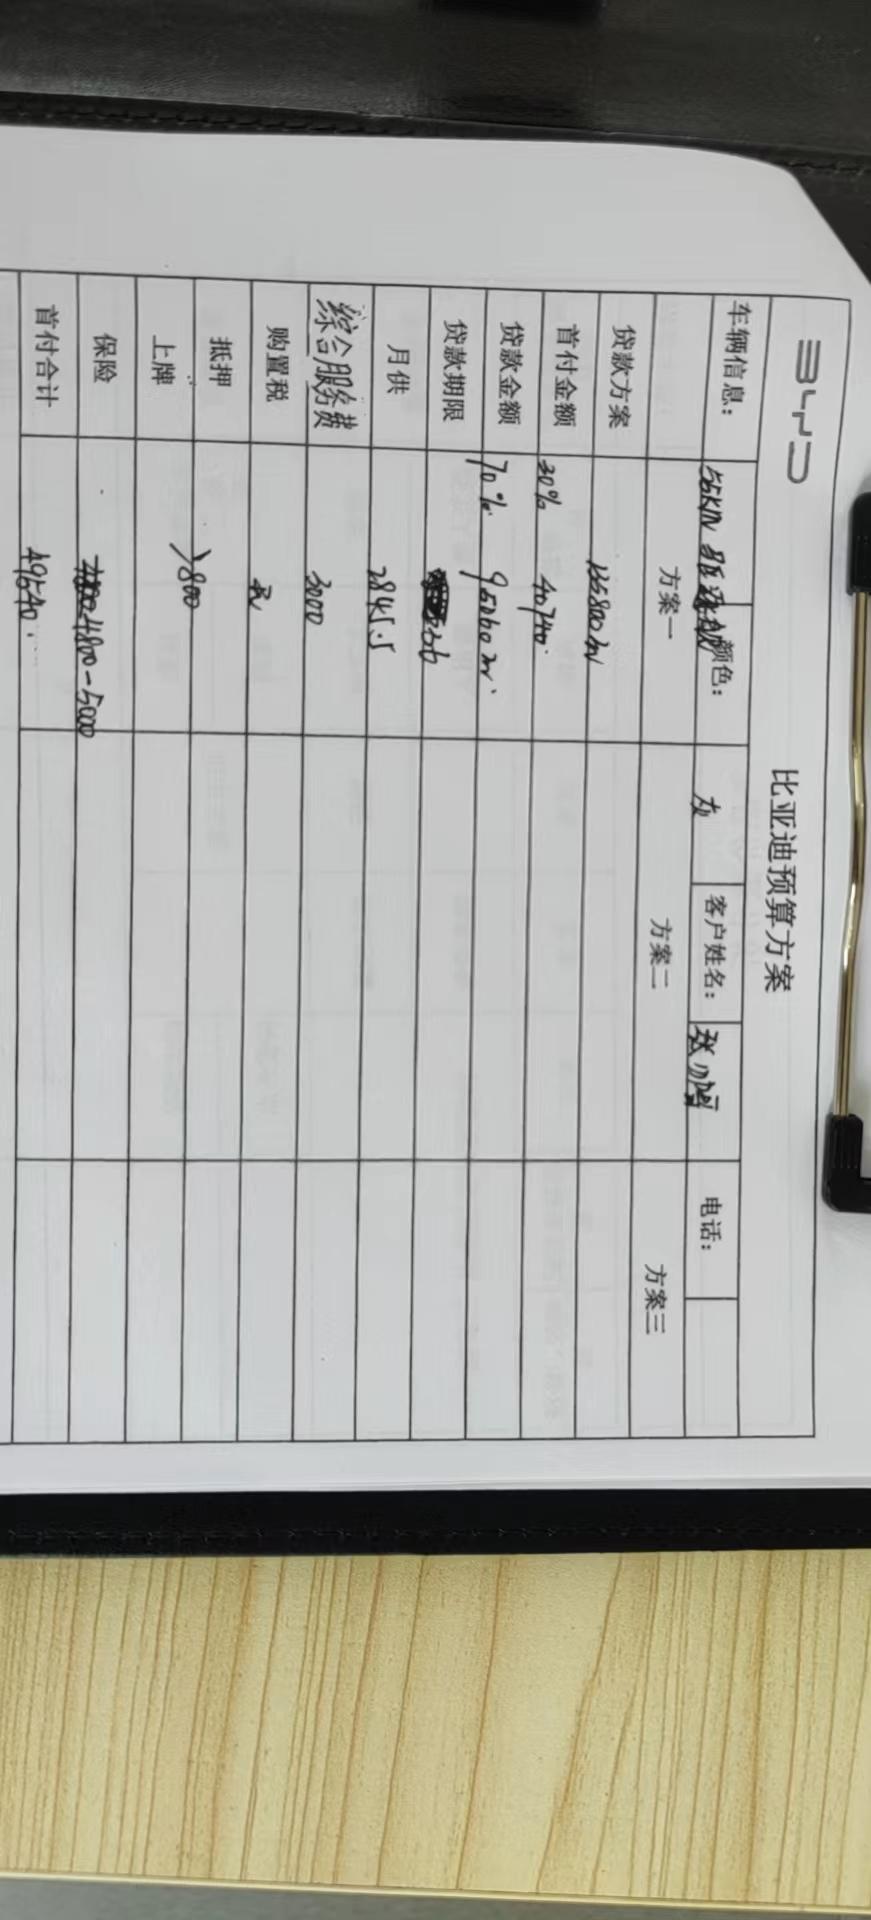 BYD
比亚迪预算方案
车辆信息: 55KM 颜色: 灰 客户姓名: 张 电话:
方案一 方案二 方案三
贷款方案 135800元
首付金额 30% 40740.
贷款金额 70% 95060元.
贷款期限 36
月供 2845.5
综合服务费 3000
购置税 无
抵押
上牌 800
保险 4800-5000
首付合计 49540.